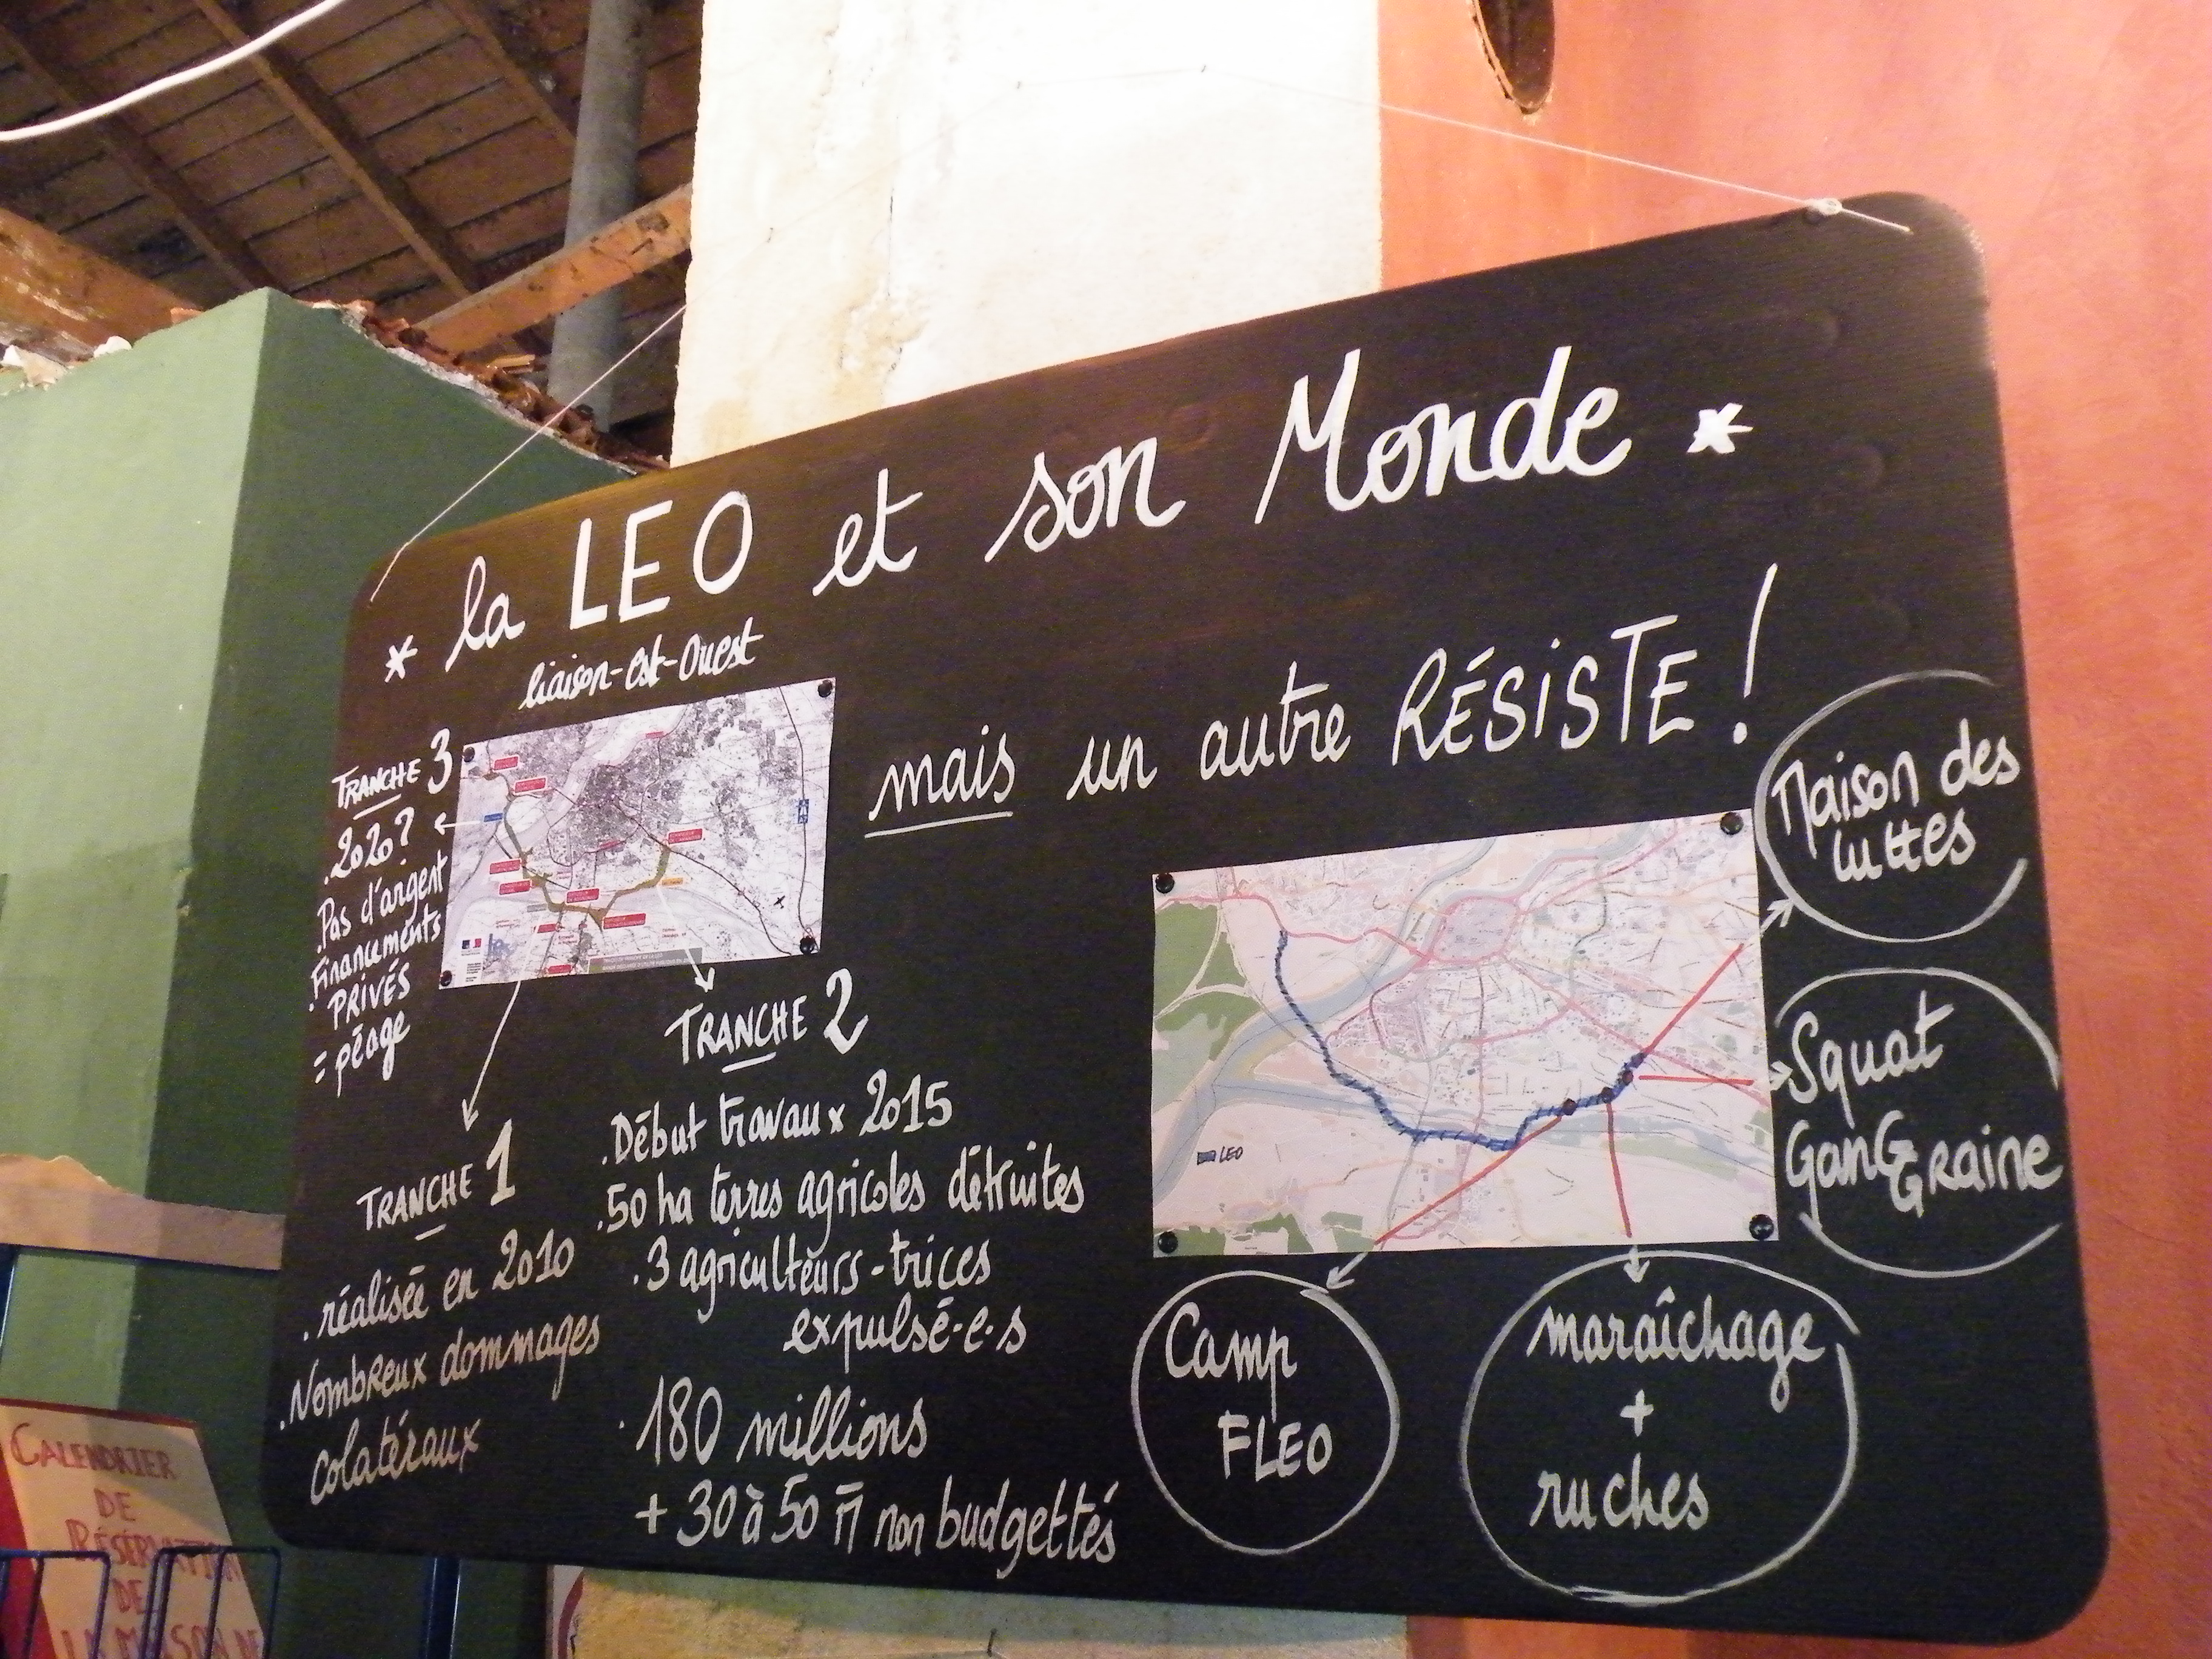 * la LEO et son Monde *
liaison-est-Ouest
mais un autre RÉSiSTE !
TRANCHE 3
. 2020 ?
. Pas d'argent
. Financements
PRIVÉS
= péage
TRANCHE 1
. réalisée en 2010
. Nombreux dommages
colatéraux
TRANCHE 2
. Début travaux 2015
. 50 ha terres agricoles détruites
. 3 agriculteurs-trices
expulsé-e-s
. 180 millions
+ 30 à 50 M non budgettés
LEO
Maison des
luttes
Squat
GanGGRaine
Camp
FLEO
maraîchage
+
ruches
CALENDRIER
DE
RÉSERVATION
DE
LA MAISON DE